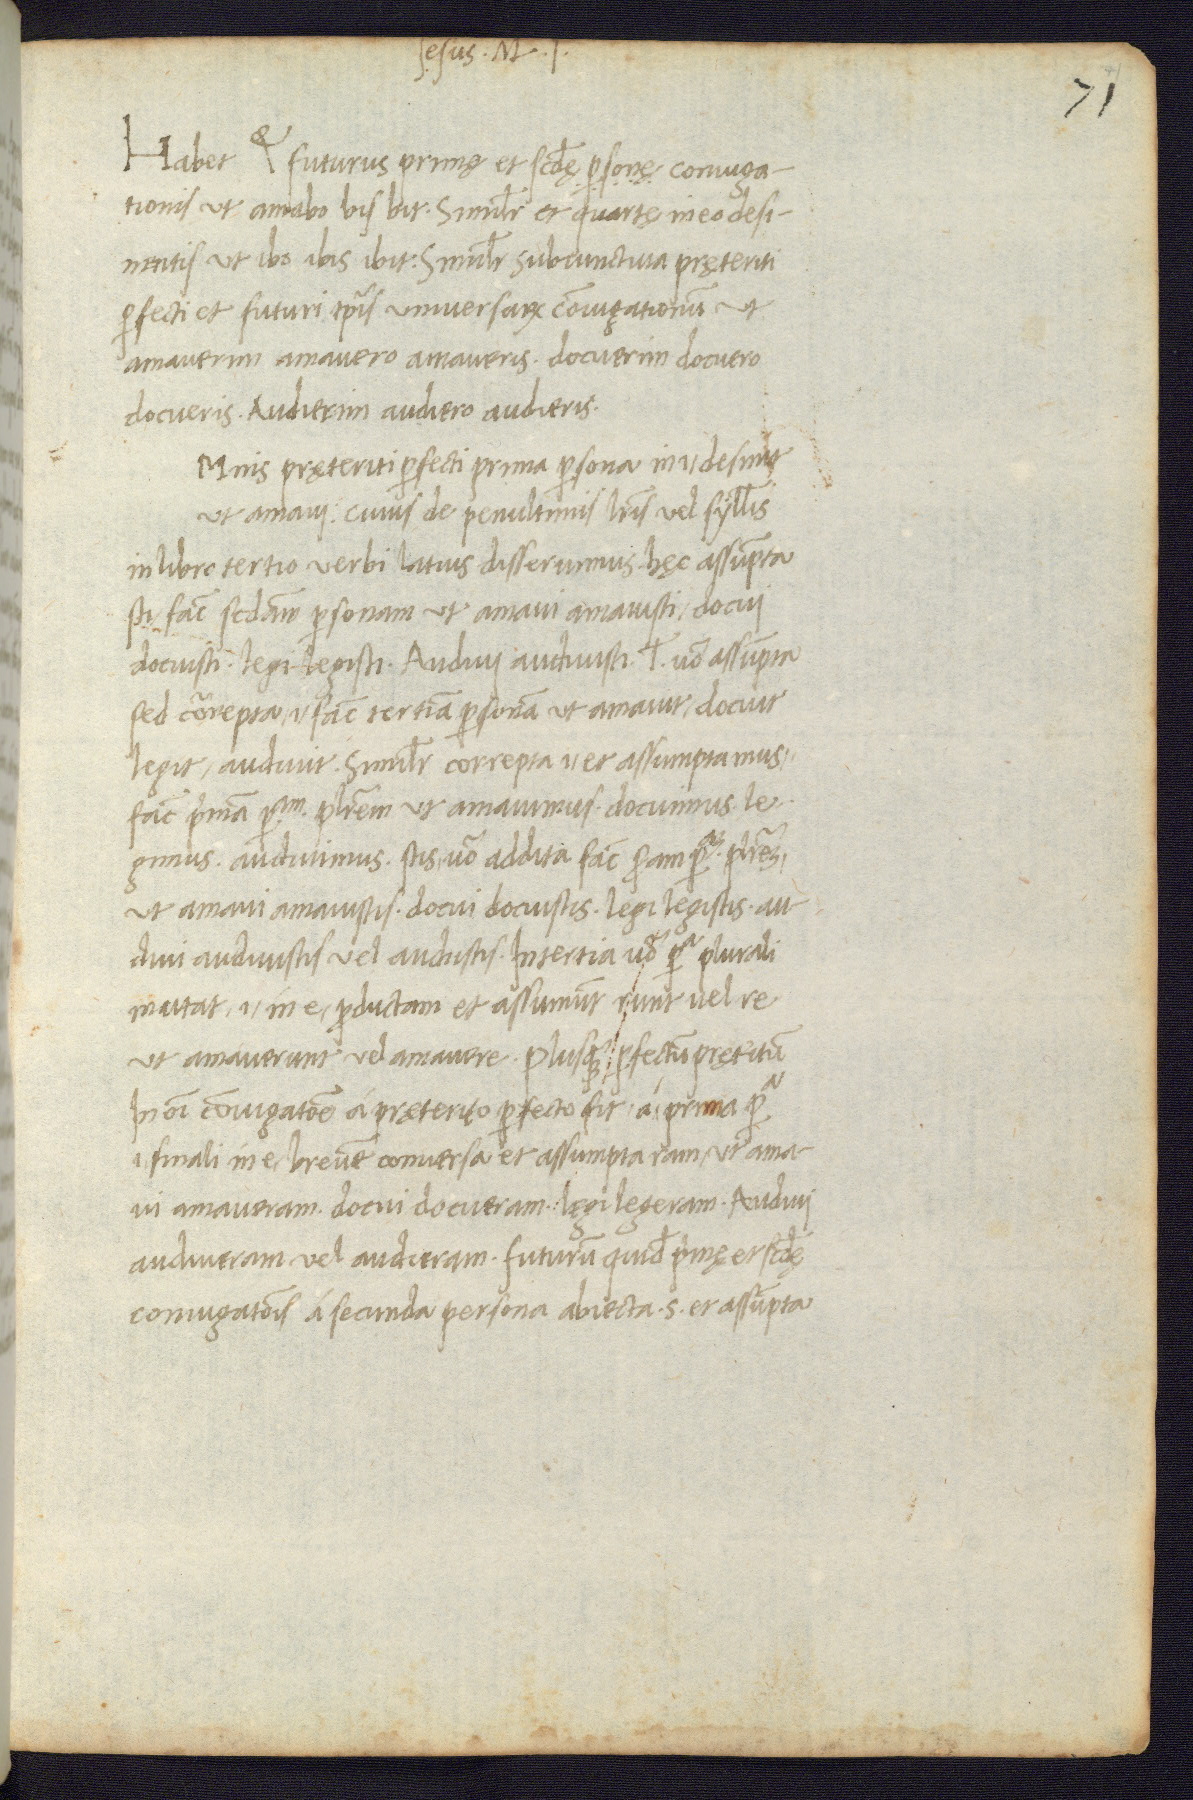 Jesus . M . J .
71
Habet & futurus primę et scdę p̱sonę coniuga-
tionis ut amabo bis bit. Similr̄ et quartę in eo desi-
nentis ut ibo ibis ibit: Similr̄ subiunctiua pręteriti
p̱fecti et futuri tp̄is uniuersaꝝ cōiugationū ut
amauerim amauero amaueris. docuerim docuero
docueris. Audierim audiero audieris.
Mnis pręteriti p̱fecti prima p̱sona in ı desinit
ut amaui: cuius de penultimis lr̄is vel syll̄is
in libro tertio verbi latius disserimus. hęc assūpta
sti fac̄ scdam̄ p̱sonam ut amaui amauisti, docui
docuisti. legi legisti. Audiui audiuisti. T. uō assūpta
sed cōrrepta, ı, fac̄ tertiā p̱sonā ut amauit, docuit
legit, audiuit. Similr̄ correpta ı, et assumpta mus,
fac̄ p̄mā p̱.am plr̄em ut amauimus. docuimus. le-
gimus. audiuimus. stis, uō addita fac̄ s̱am p̱.ā plr̄ē,
ut amaui amauistis. docui docuistis. legi legistis. au
diui audiuistis vel audistis. In tertia uō p̱.a plurali
mutat, ı, in e, p̱ductam et assumūt runt uel re
ut amauerunt vel amauere. Plusꝗ p̱fectū pręteritū
In oī cōiugatōe á pręterito p̱fecto fit, á, prima p̱.a
ı, finali in e, breuē conuersa et assumpta ram, ut ama-
ui amaueram. docui docueram. lęgi legeram. Audiui
audiueram vel audieram. futurū quid̄ p̄mę et scdę
coniugatōis á secunda persona abiecta. s. et assūpta